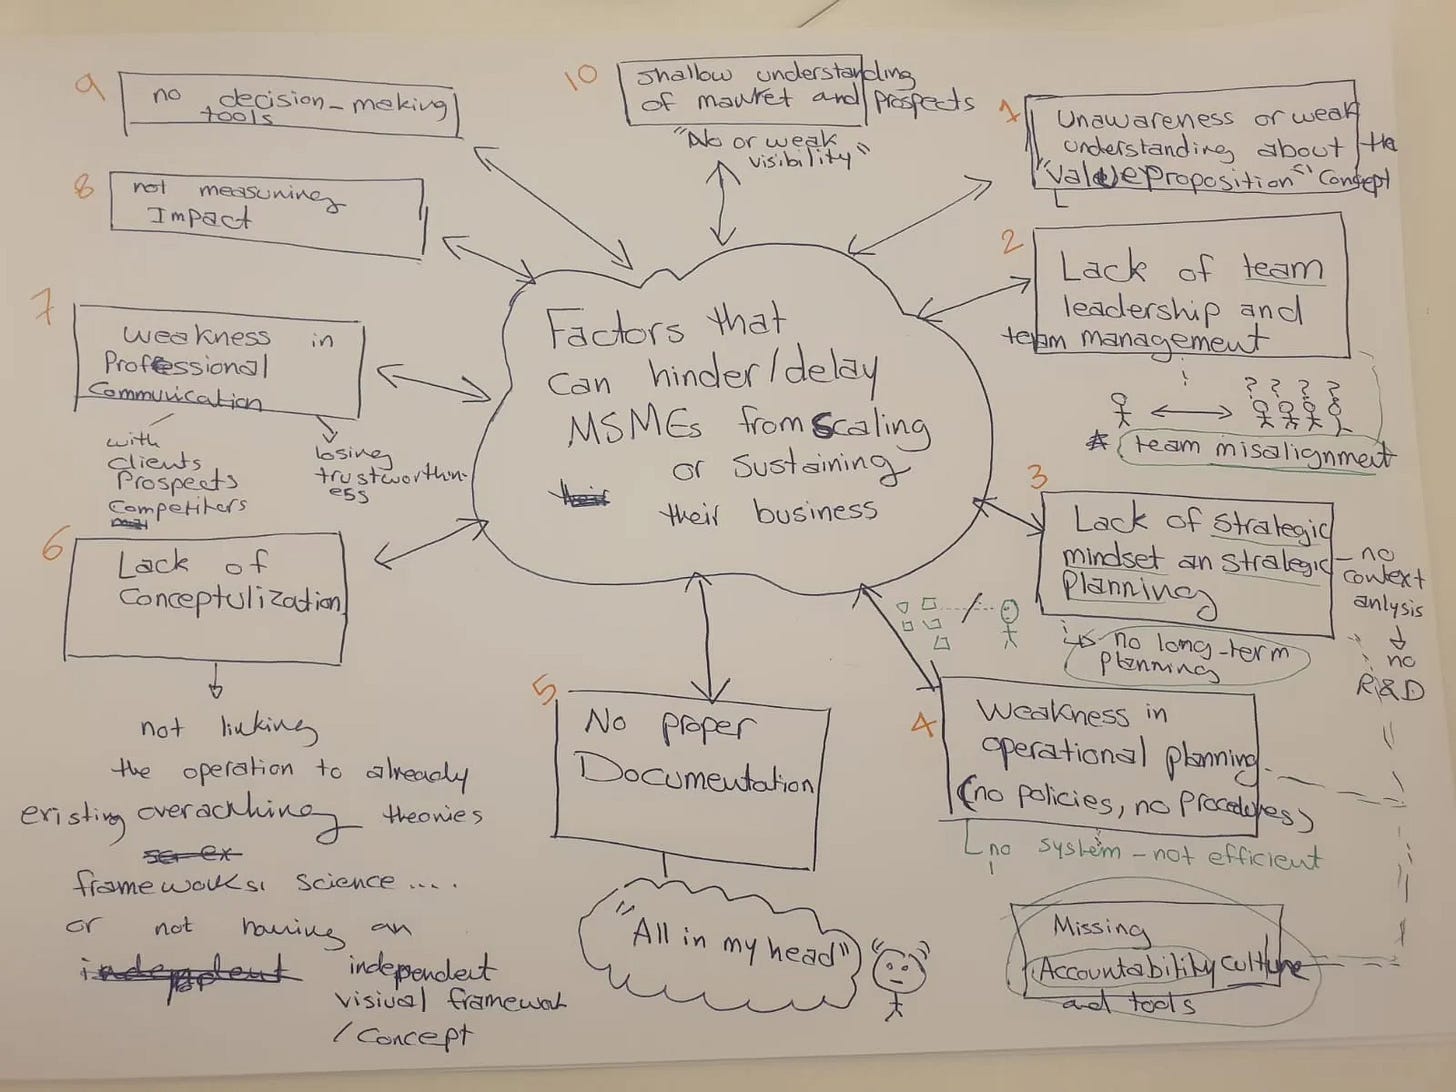 Factors that
can hinder/delay
MSMEs from scaling
or sustaining
their
their business
1
Unawareness or weak
understanding about the
"Value Proposition" Concept
2
Lack of team
leadership and
team management
? ? ? ?
* team misalignment
3
Lack of strategic
mindset an strategic
Planning
no long-term
planning
no
context
anlysis
no
R&D
4
Weakness in
operational planning
(no policies, no procedures)
no system - not efficient
Missing
Accountability culture
and tools
5
No proper
Documentation
"All in my head"
6
Lack of
Conceptulization
not linking
the operation to already
existing overackhing theories
frameworks, science ....
or not having an
independent
visiual framewok
/ Concept
7
weakness in
Professional
Communication
with
clients
Prospects
Competiters
losing
trustworthin-
ess
8
not measuring
Impact
9
no decision-making
tools
10
shallow understanding
of market and prospects
"No or weak
visibility"